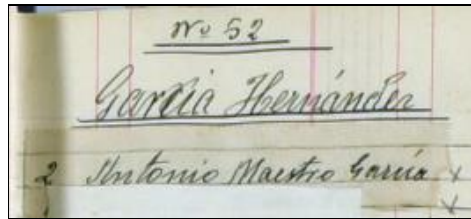 Nº 52
García Hernández
2 Antonio Maestro García x
x